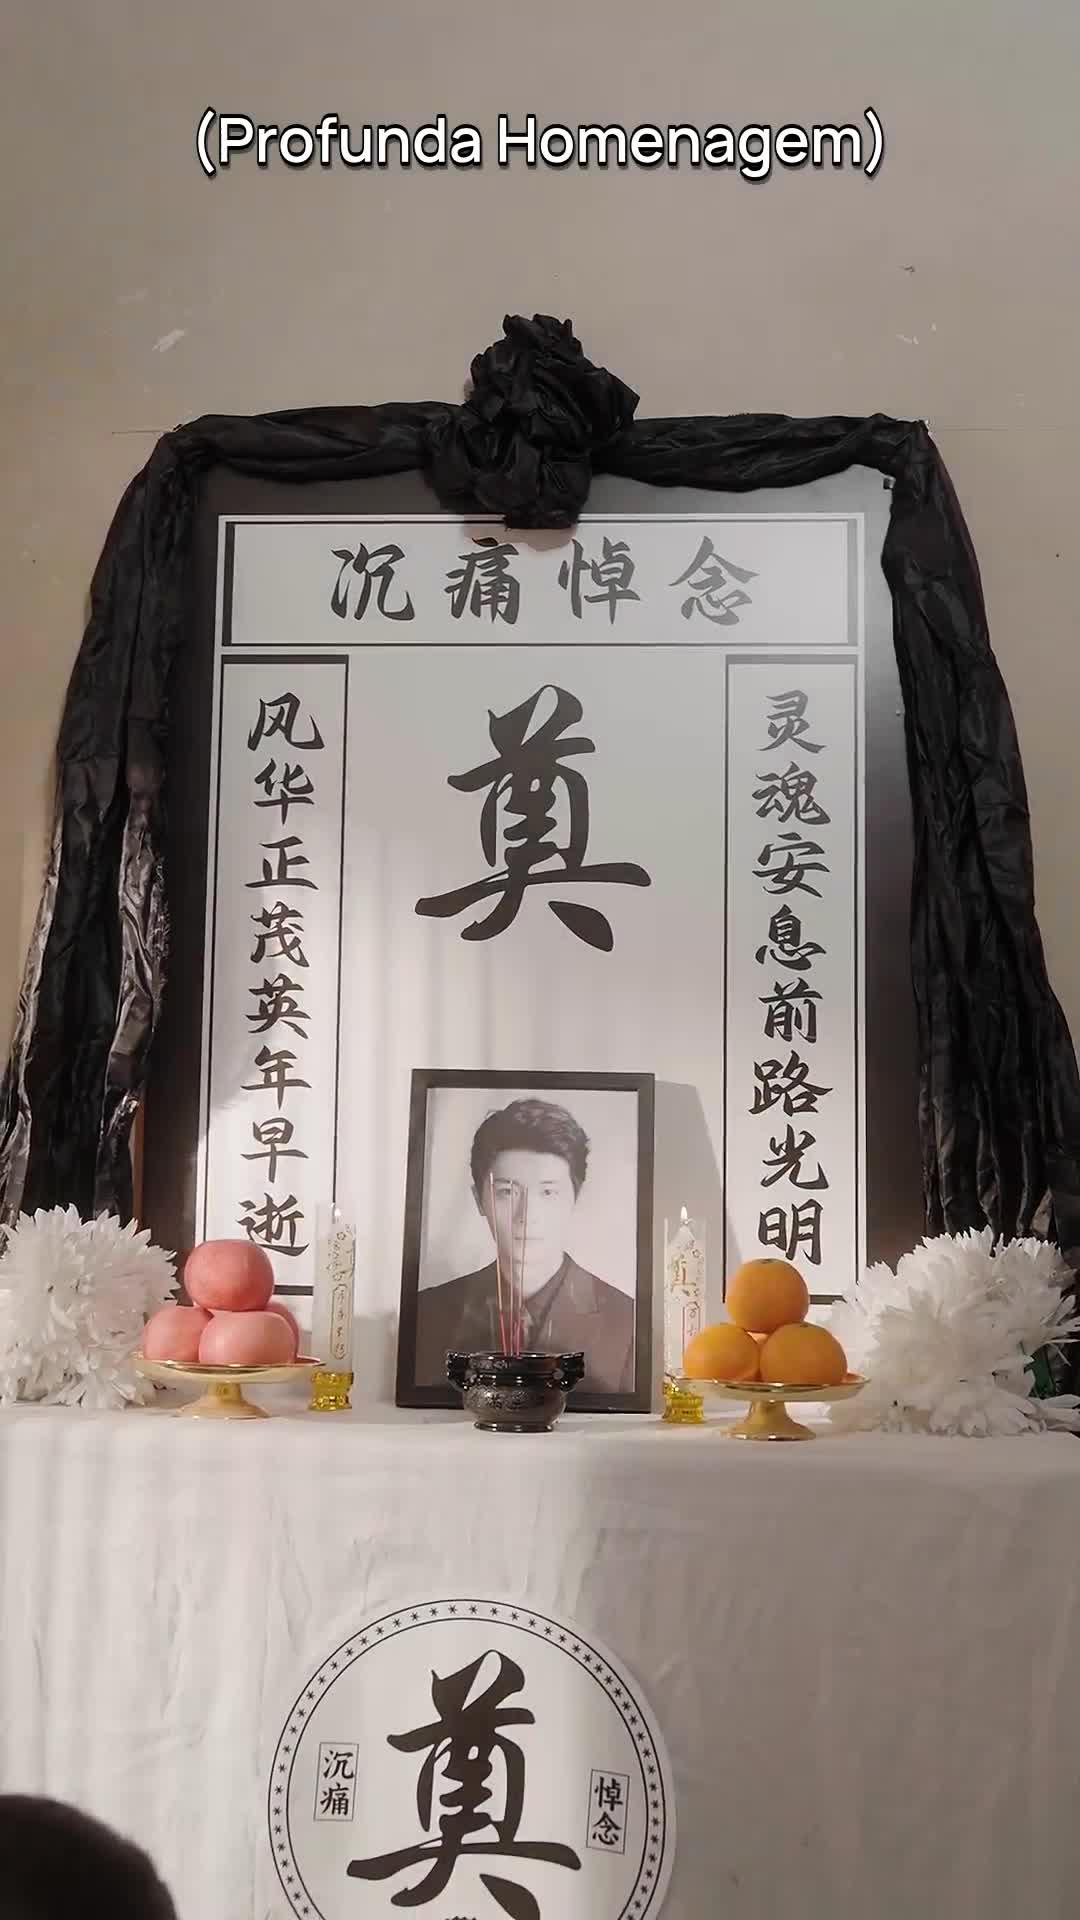 (Profunda Homenagem)
沉痛悼念
奠
风华正茂英年早逝
灵魂安息前路光明
奠
沉痛
悼念